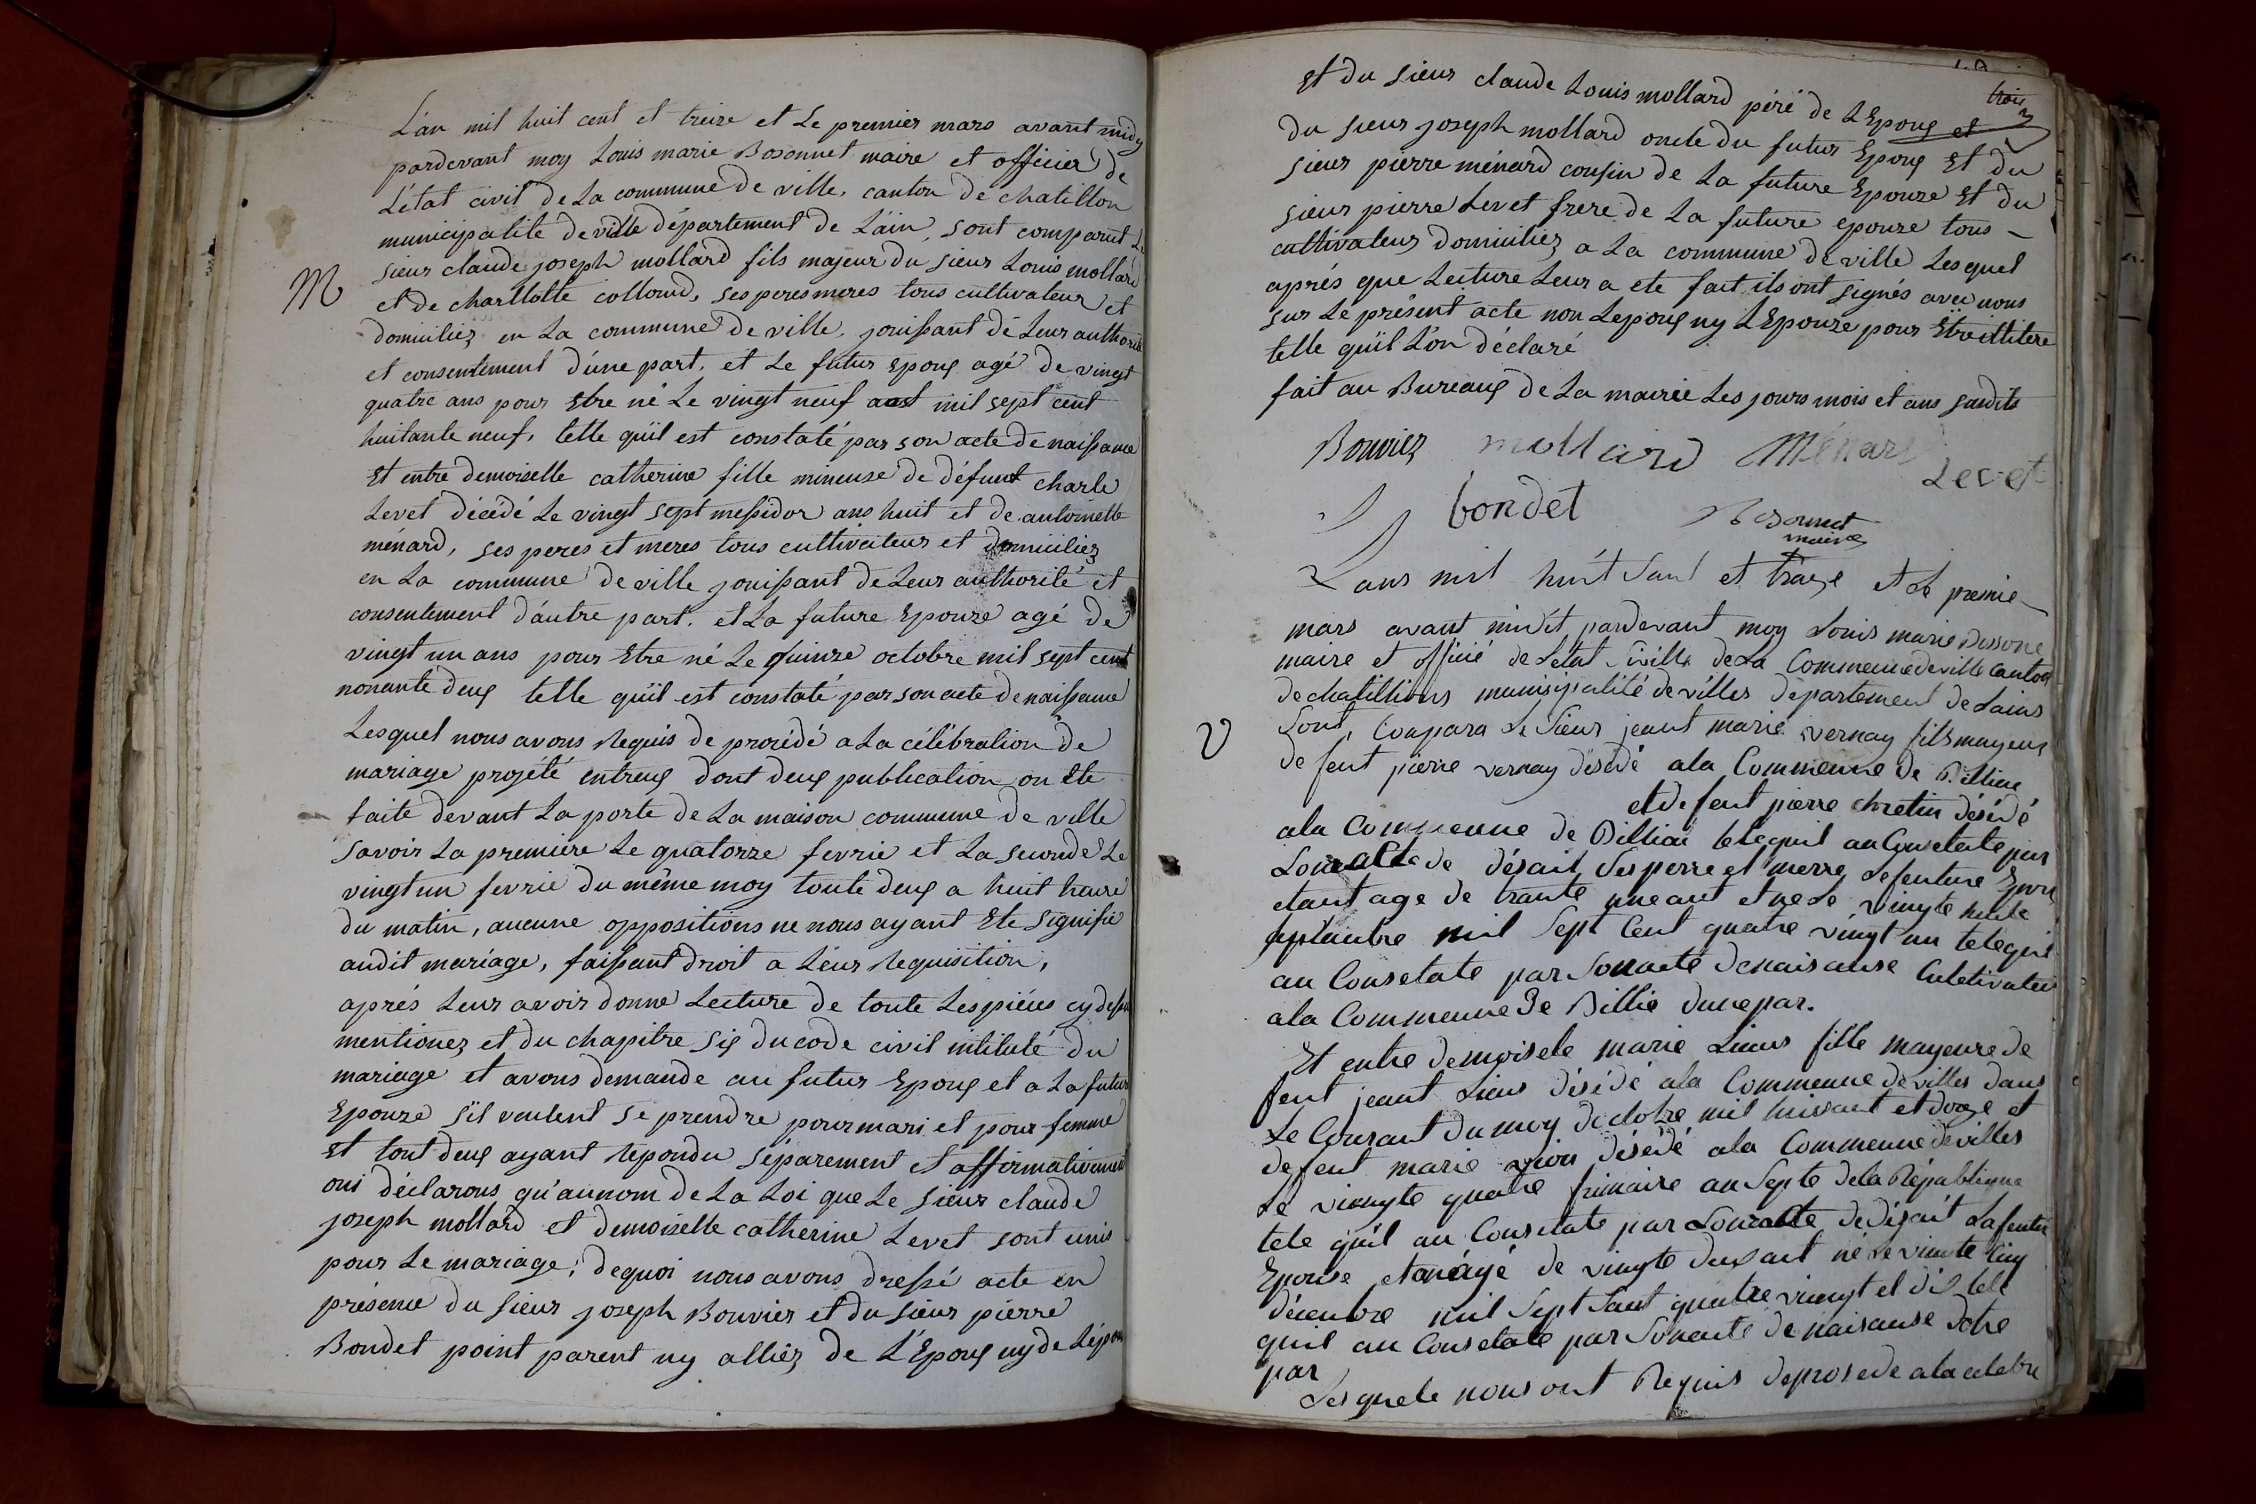 L'an mil huit cent et treize et Le premier mars avant midy
pardevant moy Louis marie Bosonnet maire et officier de
L'état civil de La commune de ville, canton de chatillon
municipalite de ville département de L'ain, sont comparut Le
M
sieur claude joseph mollard fils majeur du sieur Louis mollard
et de charllotte collomd, ses peres meres tous cultivateur et
domiciliez en La commune de ville, jouissant de Leur authorité
et consentement d'une part, et Le futur Epoux agé de vingt
quatre ans pour Etre né Le vingt neuf aost mil sept cent
huitante neuf, telle qu'il est constaté par son acte de naissance
Et entre demoiselle catherine fille mineuse de défunt charle
Levet décédé Le vingt sept messidor ans huit et de antoinette
menard, ses peres et meres tous cultivateur et domiciliez
en La commune de ville jouissant de Leur authorité et
consentement d'autre part. et La future Epouze agé de
vingt un ans pour Etre né Le quinze octobre mil sept cent
nonante deux telle qu'il est constaté par son acte de naissance
Lesquel nous avons Requis de procédé a La célébration de
mariage projété entreux dont deux publication on Ete
faite devant La porte de La maison commune de ville
savoir La première Le quatorze fevrié et La seconde Le
vingt un fevrié du même moy toute deux a huit heure
du matin, aucune oppositions ne nous ayant Ete signifié
audit mariage, faissant droit a Leur Requisition,
aprés Leur avoir donné Lecture de toute Les piéces cy dessu
mentionez et du chapitre six du code civil intitulé du
mariage et avons demande au futur Epoux et a La futur
Epouze s'il veulent se prendre pour mari et pour femme
Et tout deux ayant repondu séparement et affirmativement
oui déclarons qu'au nom de La Loi que Le sieur claude
joseph mollard et demoiselle catherine Levet sont unis
pour Le mariage, dequoi nous avons dressé acte en
présence du sieur joseph Bouvier et du sieur pierre
Bondet point parent ny alliez de L'Epoux ny de L'épou
trois
Et du sieur claude Louis mollard péré de L'Epoux et
du sieur joseph mollard oncle du futur Epoux Et du
sieur pierre ménard cousin de La future Epouze Et du
sieur pierre Levet frere de La future epouze tous
cultivateur domiciliez a La commune de ville Lesquel
aprés que Lecture Leur a ete fait ils ont signés avec nous
sur Le présent acte non Lepoux ny L'Epouze pour Etre illitere
telle qu'il L'on déclaré
fait au Bureaux de La mairie Les jours mois et ans susdits
Bouvier mollard Ménard
Levet
bondet
Bosonnet
maire
Lans mil huit Sant et traize et Le premié
mars avant midit pardevant moy Louis marie Bossone
maire et offisié de Letat Siville de La Commeune de ville Canton
de chatillions munisipalité de villes département de Lains
V
Sont, Conpara Le Sieur jeant marie vernay fils mayeur
de feut pierre vernay désedé ala Commenne de Billiac
et de feut pierre chretin désédé
ala Commenne de Billiac telequil au Consetate par
Sonacte de désait Ses perre et merre Le feuture Epou
etant age de trante une ant et ne Le vingte huite
septanbre mil Sept Cent quatre vingt un telequil
au Consetate par Sonacte de naisanse Culetivateur
ala Commenne de Billie dune par.
Et entre demoisele marie Lieus fille mayeure de
feut jeant Lieus désédé ala Commenne de villes dans
Le Courant du moy doctobre mil huisant et doze et
defeut marie désédé ala Commenne de villes
Le viengte quatre frimaire an Septe dela République
tele quil au Consetate par Sonacte dedésait Lafeutur
Epouse etanágé de vingte deux ant né Le vinte cinq
décenbre mil Sept Sant quatre viengt et dix tele
quil au Consetate par Sonacte de naisanse dotre
par
Lesquele nous ont Requis deprosede ala celebra